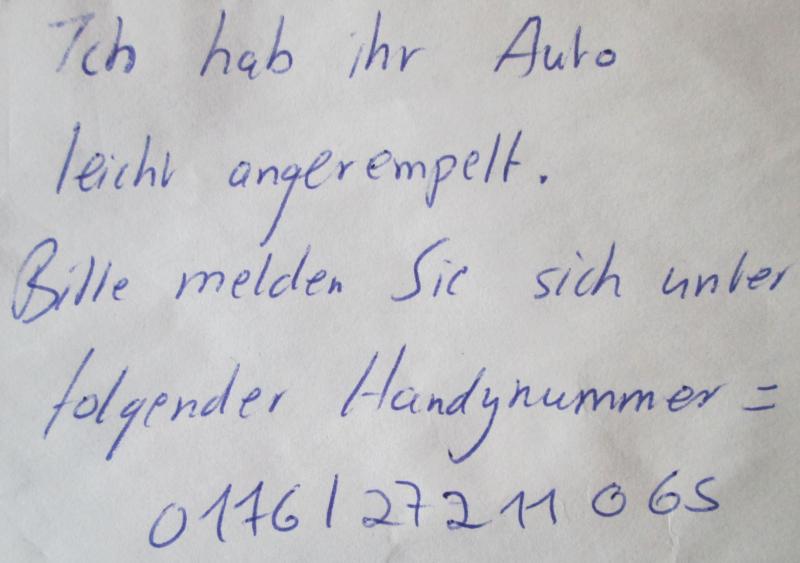 Ich hab ihr Auto
leicht angerempelt.
Bitte melden Sie sich unter
folgender Handynummer =
0176/27211065